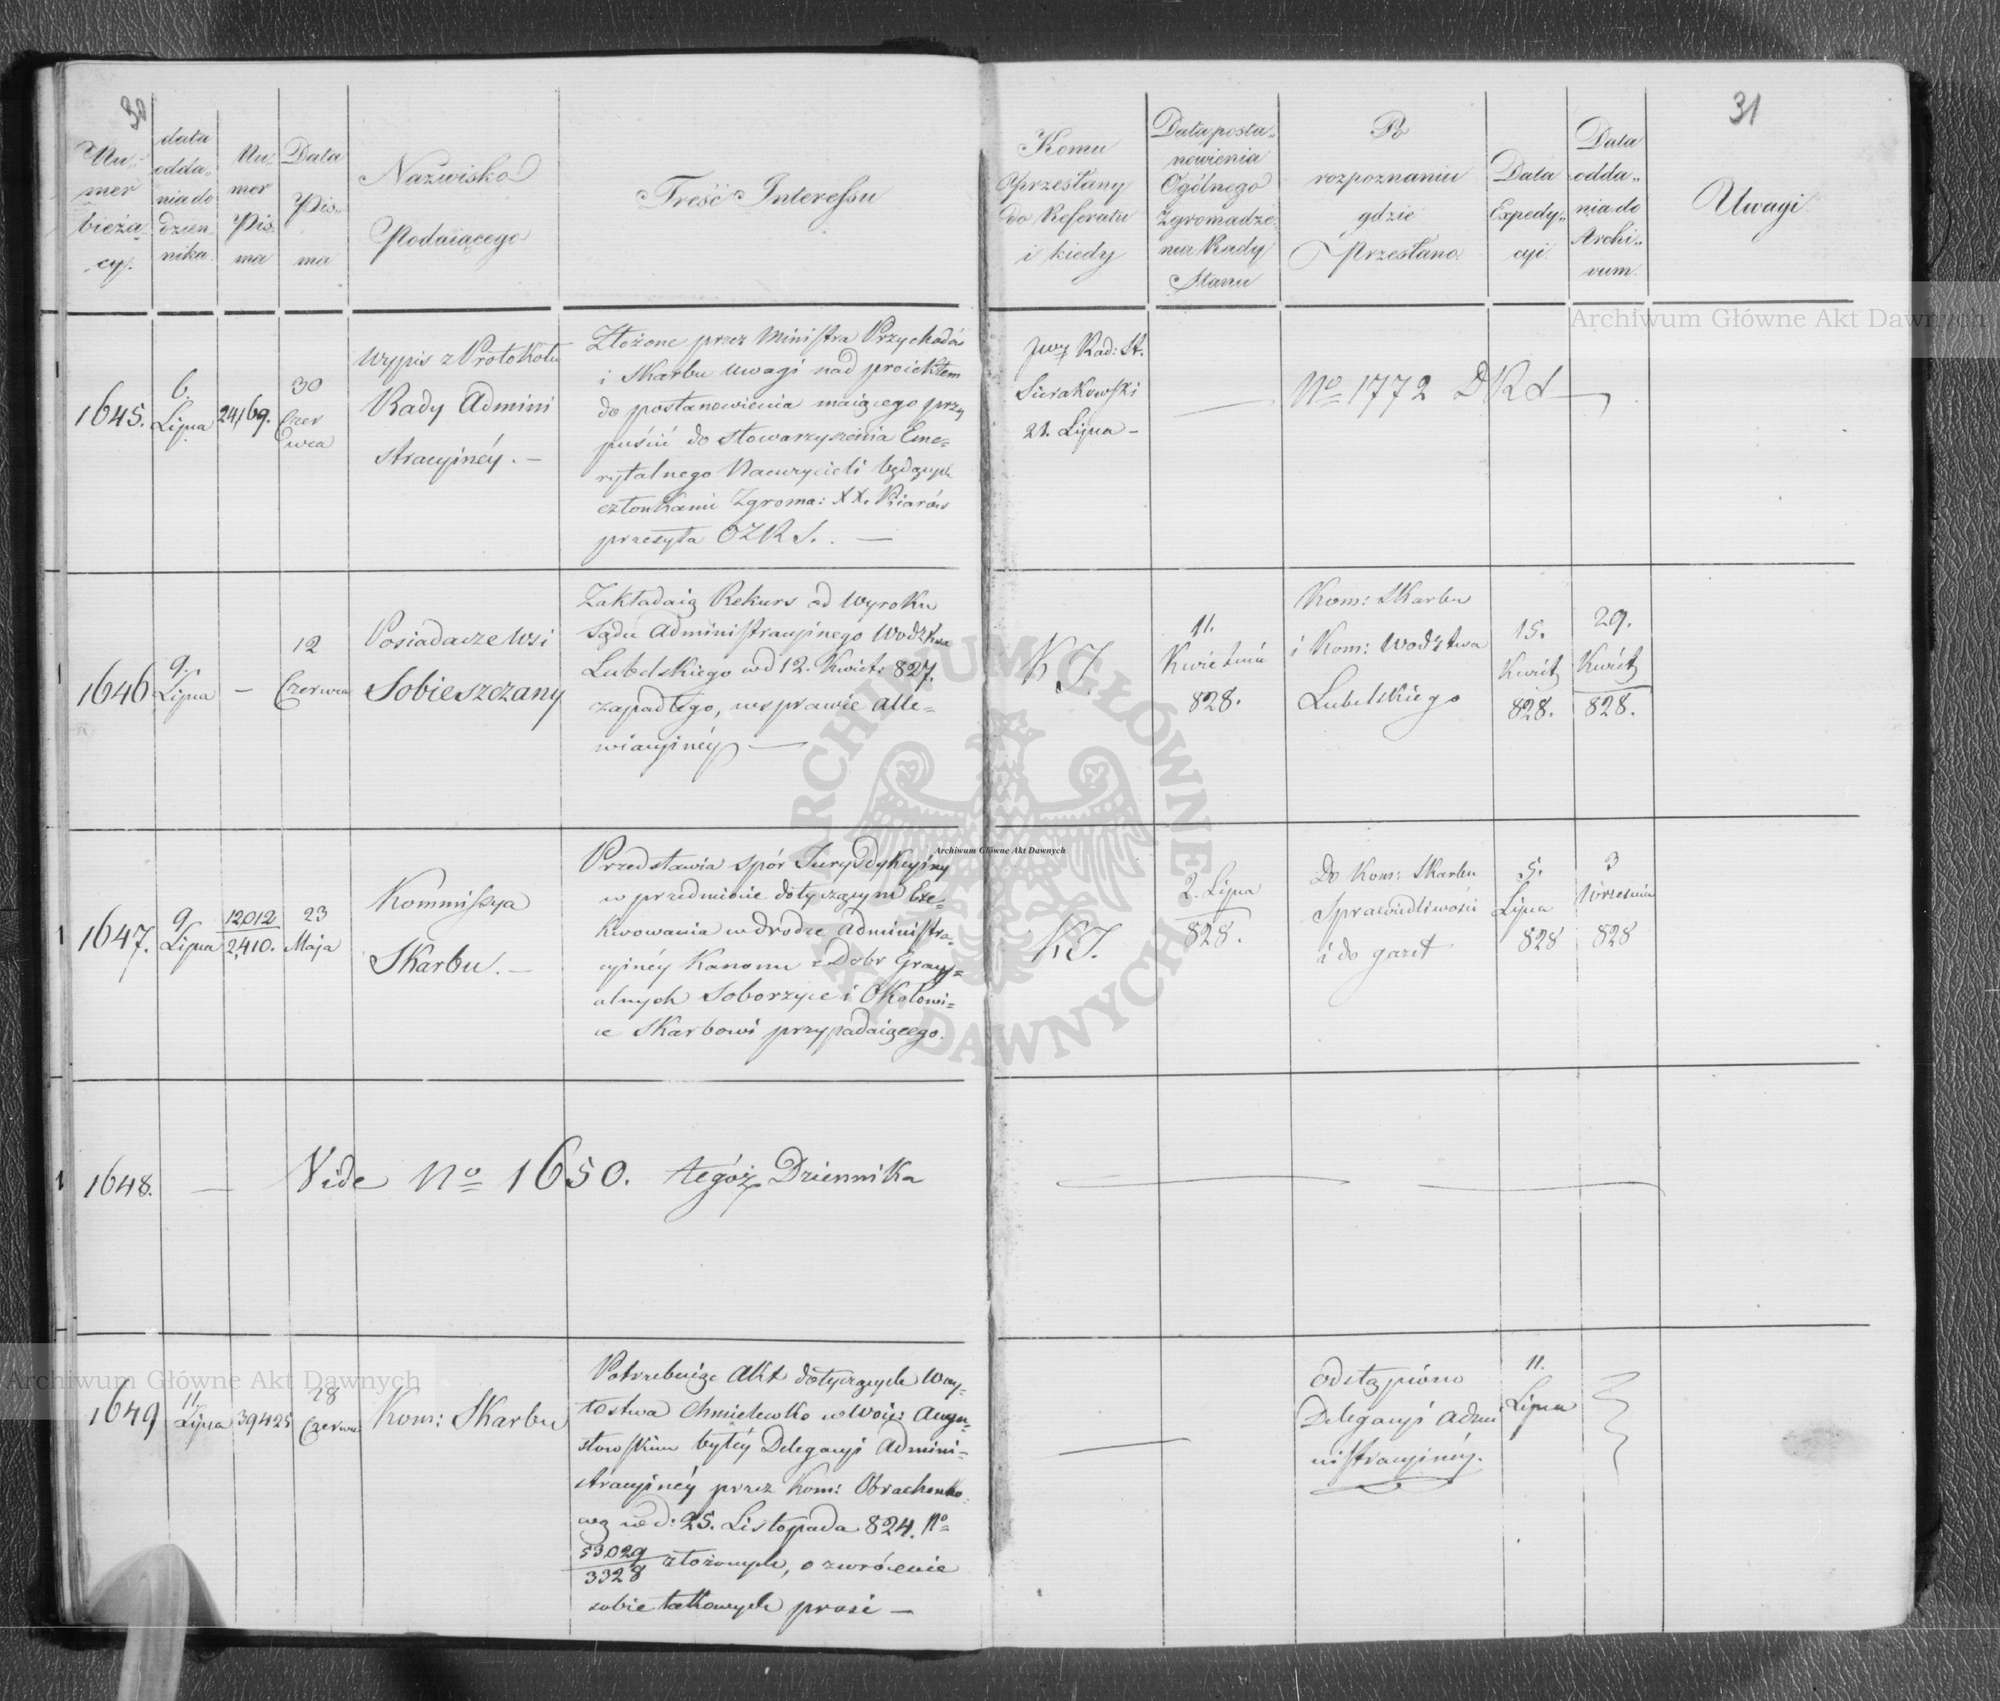 30
Nu-
mer
bieżą-
cy.
data
odda-
nia do
dzien-
nika.
Nu-
mer
Pis-
ma
Data
Pis-
ma
Nazwisko
Podaiącego
Treść Interessu
Komu
przesłany
do Referatu
i kiedy
Data posta-
nowienia
Ogólnego
Zgromadze-
nia Rady
Stanu
Po
rozpoznaniu
gdzie
Przesłano
Data
Expedy-
cyi
Data
odda-
nia do
Archi-
vum
31
Uwagi
1645.
6.
Lipca
24,169.
30
Czer
wca
Wypis z Protokołu
Rady Admini
stracyinéy. —
Złożone przez Ministra Przychodów
i Skarbu Uwagi nad proiektem
do postanowienia maiącego przy
puścić do Stowarzyszenia Eme-
rytalnego Nauczycieli będących
członkami Zgroma: XX. Piarów
przesyła OZRS. —
Rad: St.
Sierakowski
21. Lipca —
—
No 1772 DRS —
1646
9.
Lipca
—
12
Czerwca
Posiadacze Wsi
Sobieszczany
Zakładaią Rekurs od Wyroku
Sądu Administracyinego Wodztwa
Lubelskiego w d 12. Kwiet: 827.
zapadłego, w sprawie Alle-
wiacyinéy —
KJ.
11.
Kwietnia
828.
Kom: Skarbu
i Kom: Wodztwa
Lubelskiego
15.
Kwiet
828.
29.
Kwiet
828.
1647.
9
Lipca
12,012
2,410.
23
Maja
Kommissya
Skarbu. —
Przedstawia spór Jurysdykcyiny
w przedmiocie dotyczącym Exe-
kwowania w drodze Administra-
cyinéy Kanonu z Dobr Gracy-
alnych Soborzyce i Okołowi-
ce Skarbowi przypadaiącego.
KJ.
2. Lipca
828.
Do Kom: Skarbu
Sprawiedliwości
i do gazet
5.
Lipca
828
3
Września
828
1648.
—
Vide No 1650. tegóż Dziennika
1649
11
Lipca
39425
28
Czerwca
Kom: Skarbu
Potrzebuiąc Akt dotyczących Woy-
tostwa Chmielewko w Woie: Augu-
stowskim byłéy Delegacyi Admini-
stracyinéy przez Kom: Obrachunko-
wą w d: 25. Listopada 824. No
53,029
3328 złożonych, o zwrócenie
sobie takowych prosi —
—
odstąpiono
Delegacyi Admi
nistracyinéy.
11.
Lipca
Archiwum Główne Akt Dawnych
Archiwum Główne Akt Dawnych
Archiwum Główne Akt Dawnych
ARCHIWUM GŁÓWNE AKT DAWNYCH